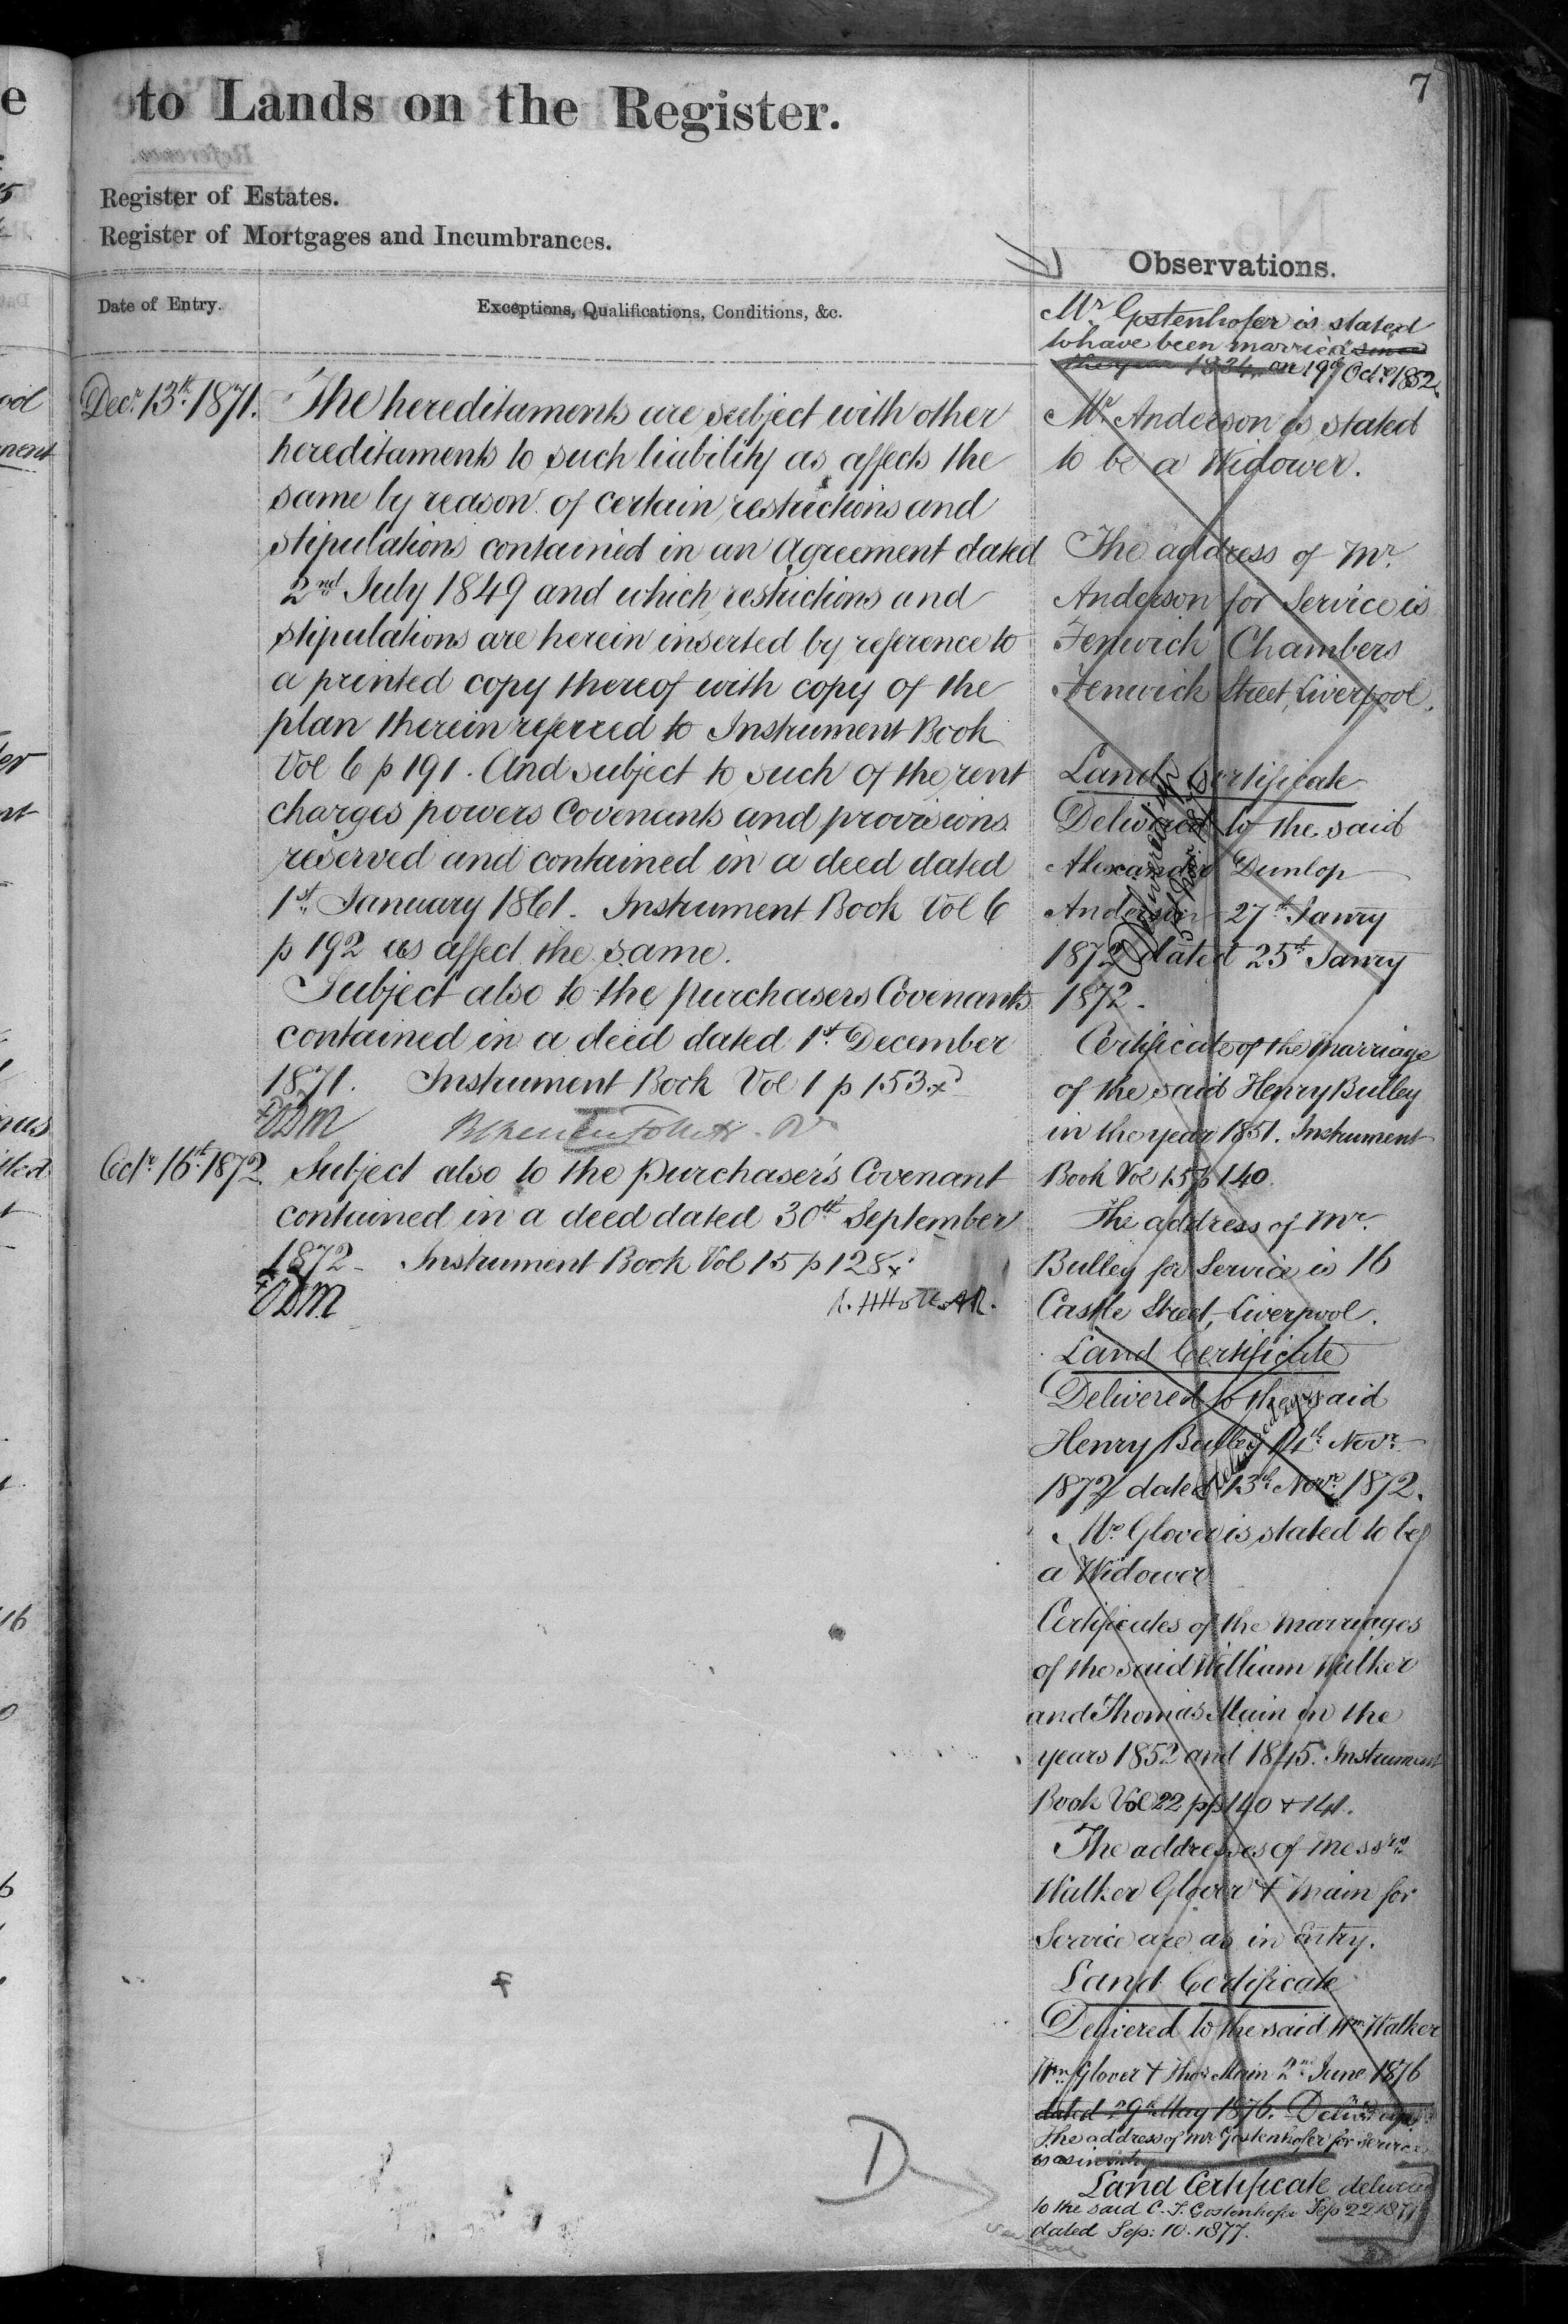 7
to Lands on the Register.
Register of Estates.
Register of Mortgages and Incumbrances.
Date of Entry.
Exceptions, Qualifications, Conditions, &c.
Decr. 13th 1871.
The hereditaments are subject with other
hereditaments to such liability as affects the
same by reason of certain restrictions and
stipulations contained in an Agreement dated
2nd July 1849 and which restrictions and
stipulations are herein inserted by reference to
a printed copy thereof with copy of the
plan therein referred to Instrument Book
Vol 6 p 191. And subject to such of the rent
charges powers Covenants and provisions
reserved and contained in a deed dated
1st January 1861. Instrument Book Vol 6
p 192 as affect the same.
Subject also to the purchasers Covenants
contained in a deed dated 1st December
1871. Instrument Book Vol 1 p 153 x
Octr. 16th 1872.
Subject also to the Purchaser's Covenant
contained in a deed dated 30th September
1872 - Instrument Book Vol 15 p 128 x
Observations.
Mr Gostenhofer is stated
to have been married since
the year 1834, on 19th Octr 1852.
Mr Anderson is stated
to be a Widower.
The address of Mr.
Anderson for Service is
Fenwick Chambers
Fenwick Street, Liverpool.
Land Certificate
Delivered to the said
Alexander Dunlop
Anderson 27th Janry
1872 dated 25th Janry
1872.
Delivered up
Certificate of the Marriage
of the said Henry Bulley
in the year 1851. Instrument
Book Vol 15 p 140.
The address of Mr.
Bulley for Service is 16
Castle Street, Liverpool.
Land Certificate
Delivered to the said
Henry Bulley 14th Novr.
1872 dated 13th Novr. 1872.
Mr Glover is stated to be
a Widower
Certificates of the marriages
of the said William Walker
and Thomas Main in the
years 1852 and 1845. Instrument
Book Vol 22 pp 140 + 141.
The addresses of Messrs
Walker Glover + Main for
Service are as in Entry.
Land Certificate
Delivered to the said Wm Walker
Wm Glover + Thos Main 2nd June 1876
dated 29th May 1876. Delivd up
The address of Mr Gostenhofer for service
is as in entry
Land Certificate delivered
to the said C. T. Gostenhofer Sep 22 1877
dated Sep: 10. 1877.
D